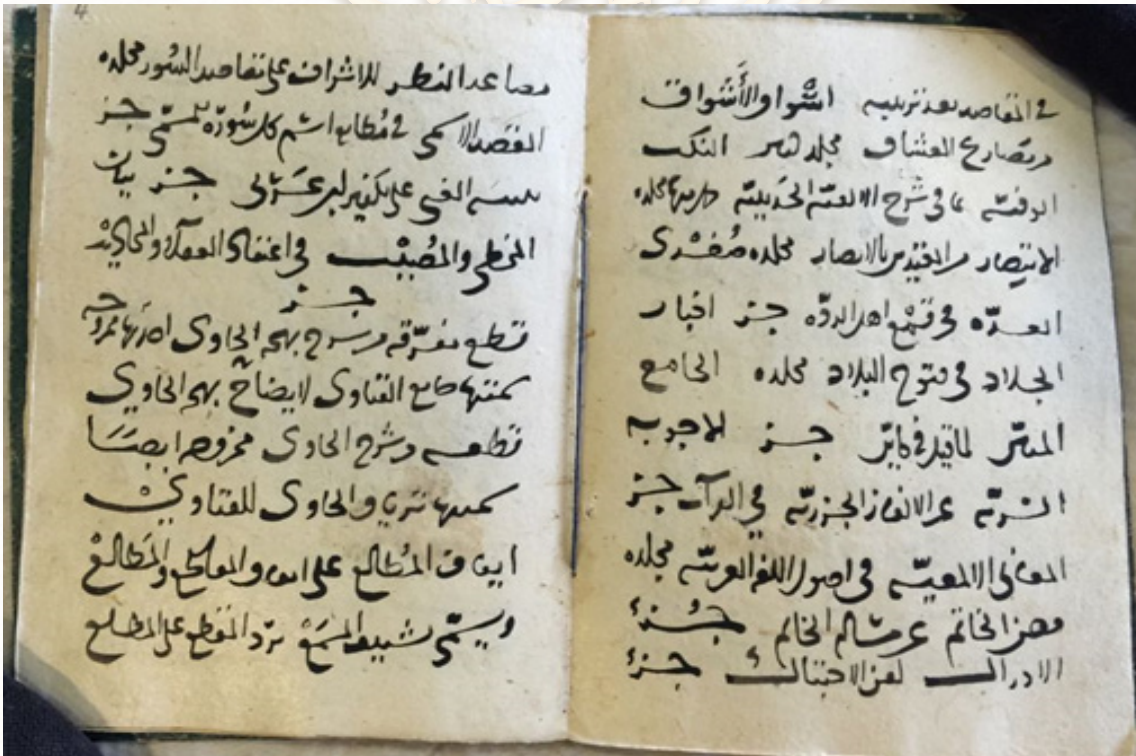 في المقاصد بعد اشواق الأشواق
من مصارع العشاق مجلد النكت
الوفية بما في شرح الالفية الحديثية مجلده
الانتصار من المعتدي بالابصار مجلده صغرى
العدة في قمع اهل الردة جز اخبار
الجلاد في فتوح البلاد مجلده الجامع
المبين لما قيل في كأين جز الاجوبه
السرية عن الالغاز الجزرية في القرآن جز
المعاني الالمعية في اصول اللغه العربية مجلده
الخاتم عن الخاتم جُزء
الادراك لفن الاحتباك جزء
4
مصاعد النظر للاشراف على مقاصد السُور مجلده
المقصد الاسمى في مُطابقة اسم كل سُورة للمسمّى جز
تنبيه الغبي على تكفير ابن عربي جز بيان
المخطي والمُصِيب في اعتقاد والمجاذيب
جز
قطع مفرّقة من شرح بهجة الحاوي ممزوجه
سميتها جامع الفتاوي لايضاح بهجة الحاوي
قطعه من شرح الحاوي ممزوجه ايضا
سميتها ترياق الحاوي للفتاوي
المُطالع على المقاطع والمَطالع
ويسمّى تشنيف المسمع بردّ المقطع على المطلع